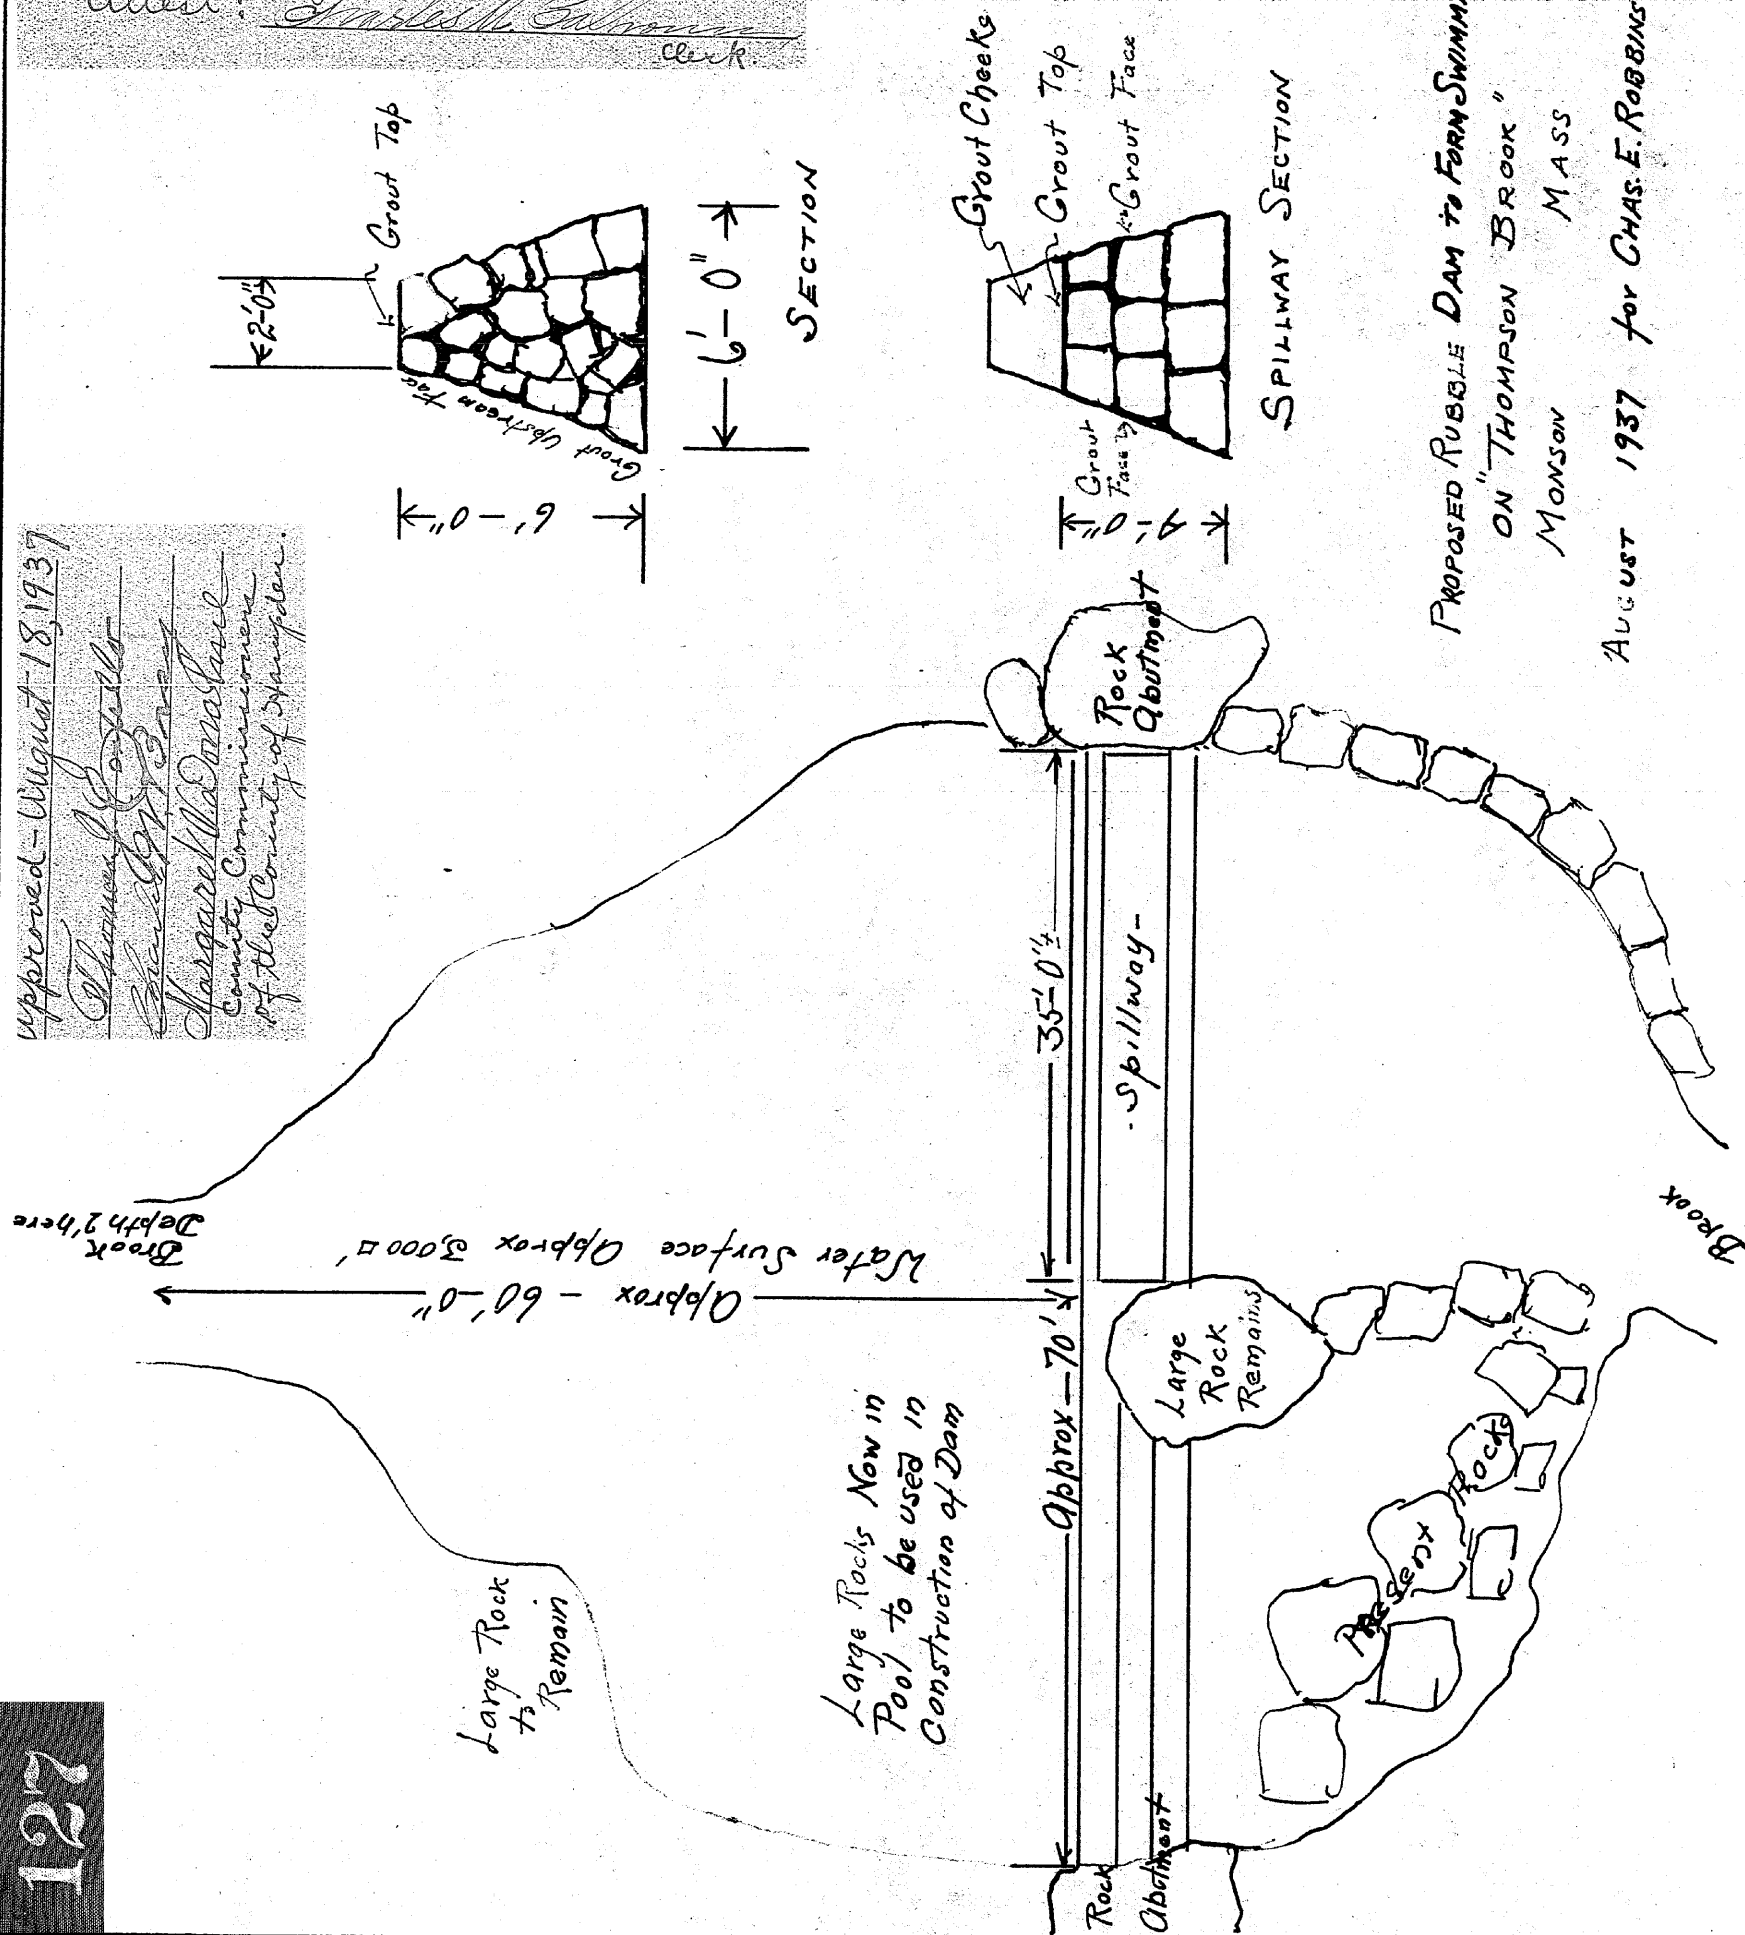 127
Approved - August 18, 1937
Thomas J. Costello
Margaret V. Donahue
County Commissioners
of the County of Hampden.
Attest:
Charles M. Calhoun
Clerk.
Brook
Depth 2' here
approx - 60'-0"
Water Surface approx 3,000 □'
Large Rock
to
Remain
Large Rocks Now in
Pool to be used in
Construction of Dam
approx - 70' ±
35'-0" ±
- Spillway -
Rock
abutment
Large
Rock
Remains
Rock
abutment
Present Rocks
Brook
2'-0"
Grout Top
Grout Upstream Fac
6'-0"
6'-0"
SECTION
Grout Cheeks
Grout Top
Grout Face
Grout
Face
4'-0"
SPILLWAY SECTION
PROPOSED RUBBLE DAM to FORM SWIMM
ON "THOMPSON BROOK"
MONSON MASS
AUGUST 1937 for CHAS. E. ROBBINS